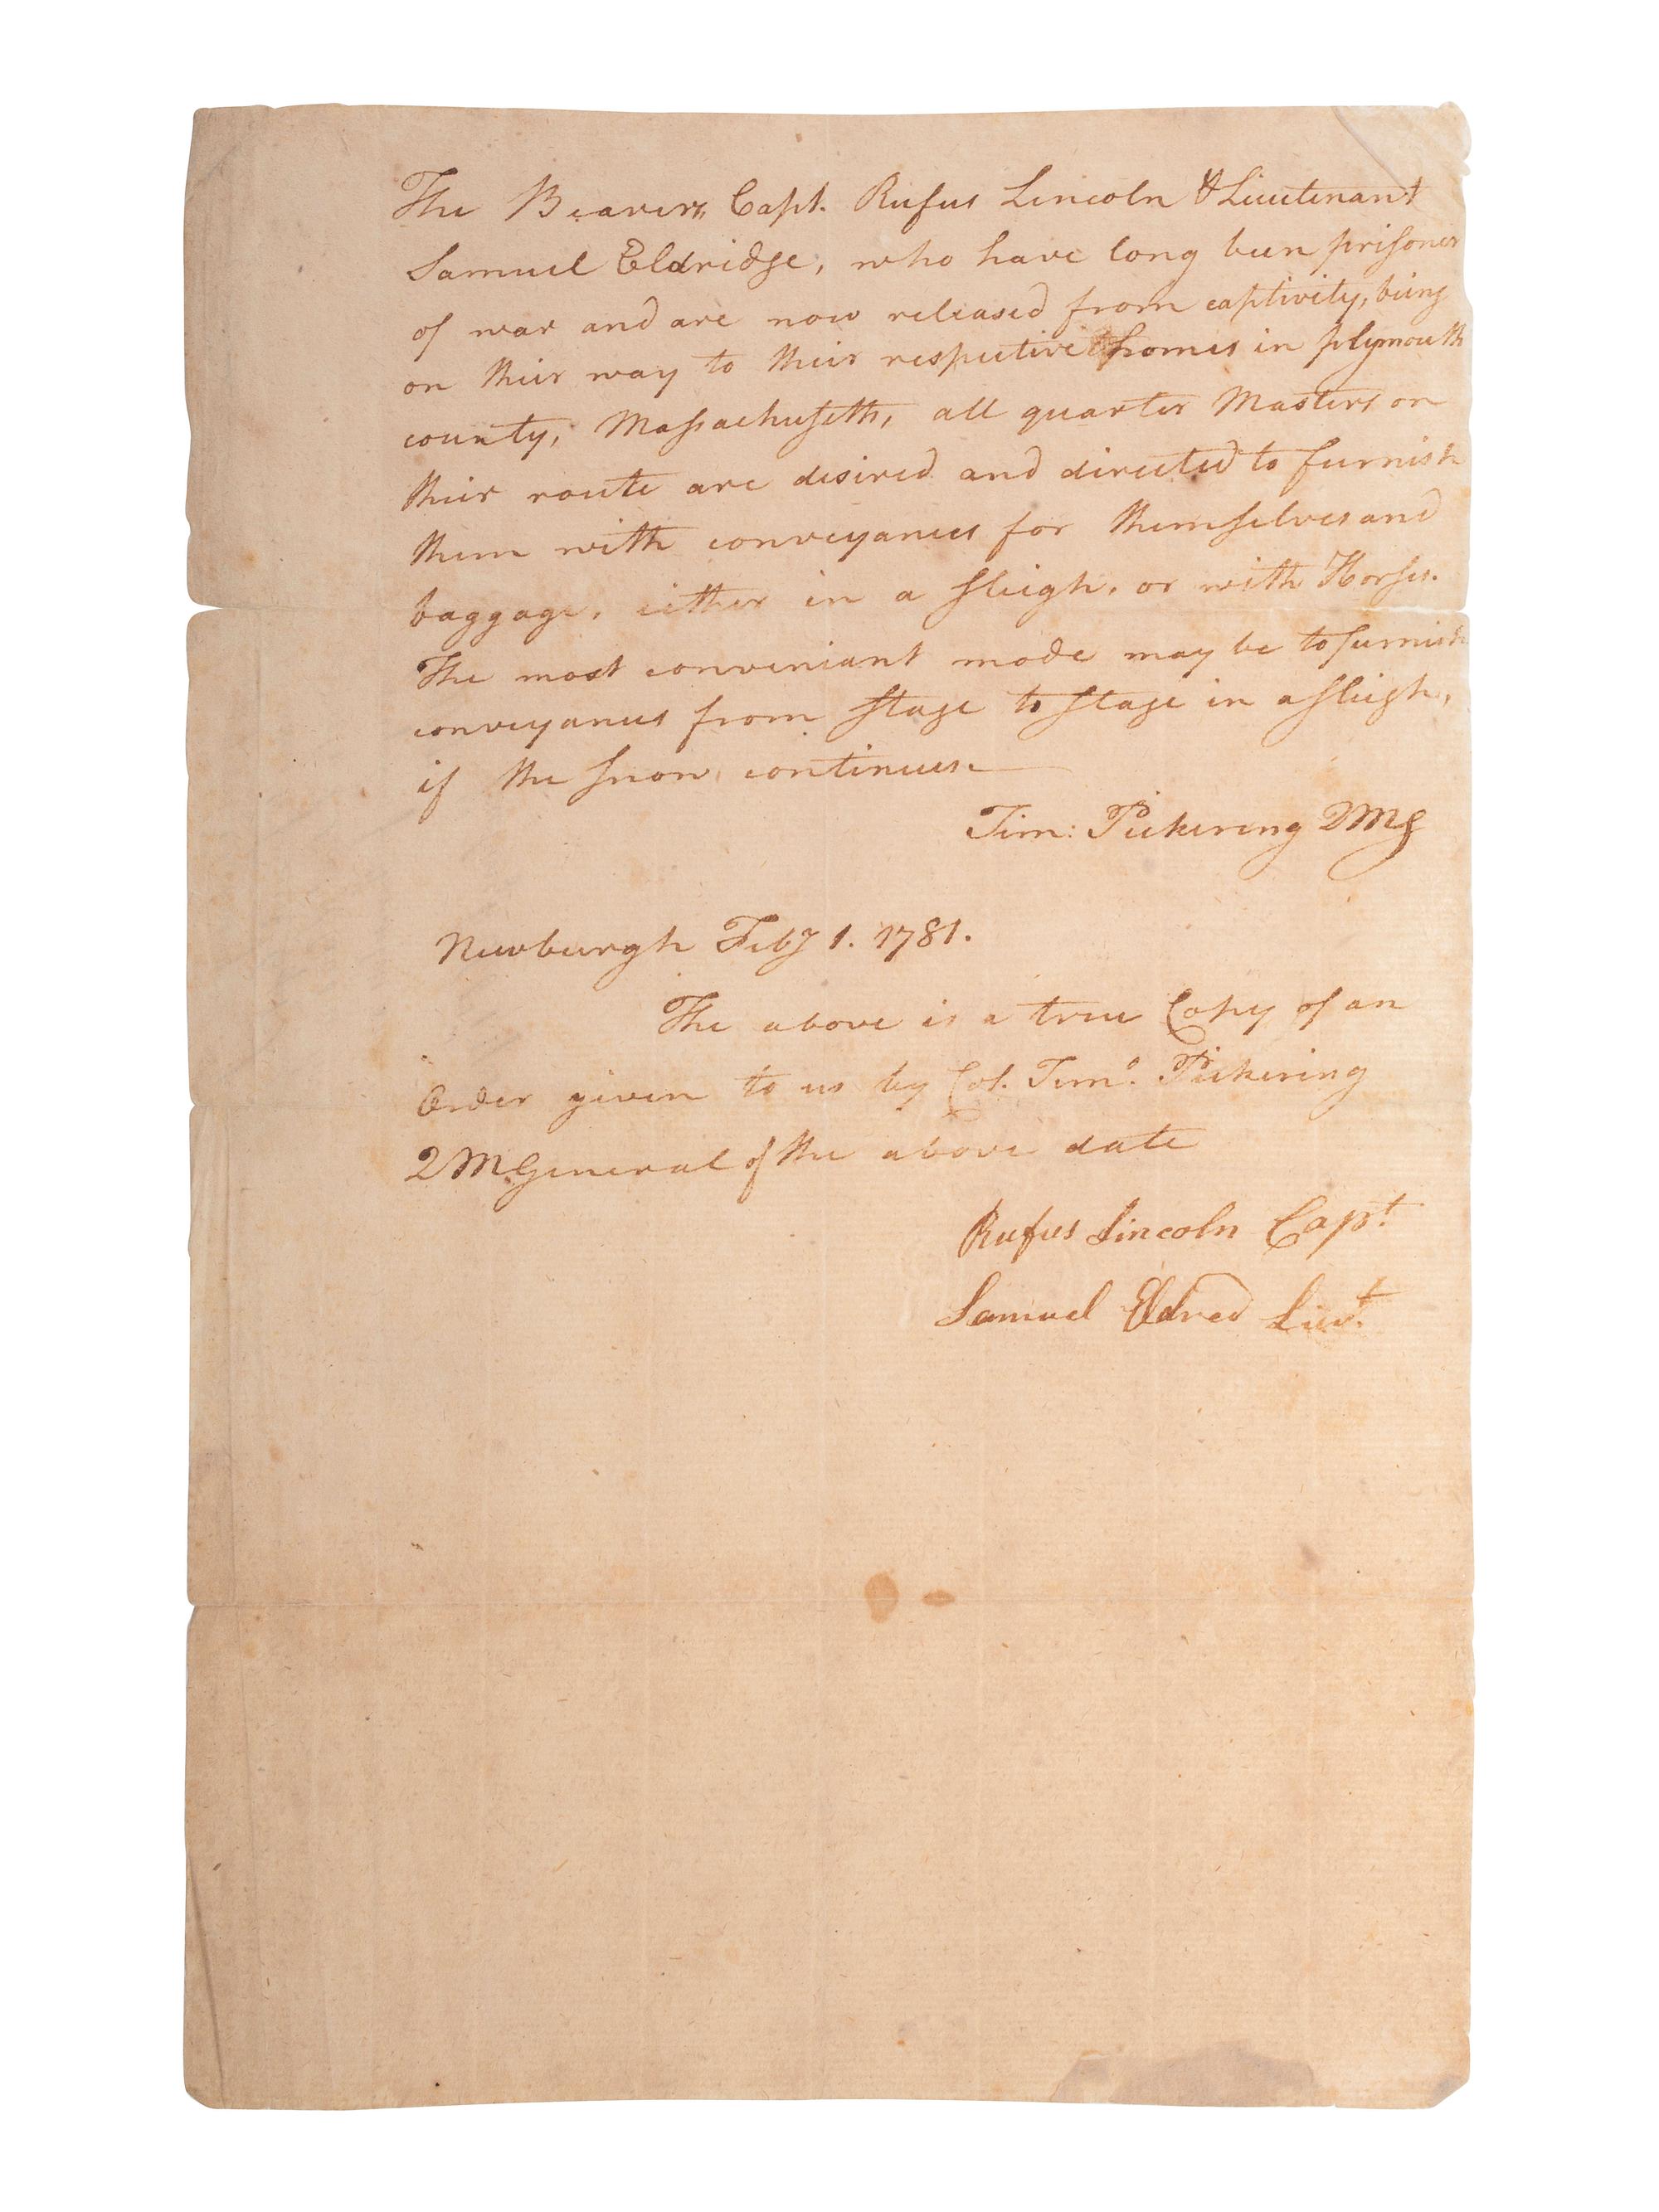 The Bearers, Capt. Rufus Lincoln & Lieutenant
Samuel Eldridge, who have long been prisoners
of war and are now released from captivity, being
on their way to their respective homes in plymouth
county, Massachusetts, all quarter Masters on
their route are desired and directed to furnish
them with conveyances for themselves and
baggage, either in a sleigh, or with Horses.
The most conveniant mode may be to furnish
conveyances from stage to stage in a sleigh,
if the snow continues.
Tim: Pickering QMG
Newburgh Feby 1. 1781.
The above is a true Copy of an
Order given to us by Col. Timo. Pickering
QMGeneral of the above date
Rufus Lincoln Capt
Samuel Eldred Lieut.